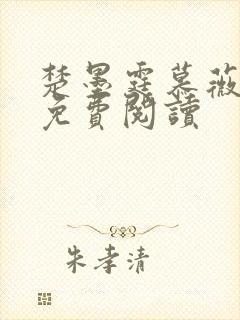 楚墨霆慕薇
免費閱讀
朱孝清